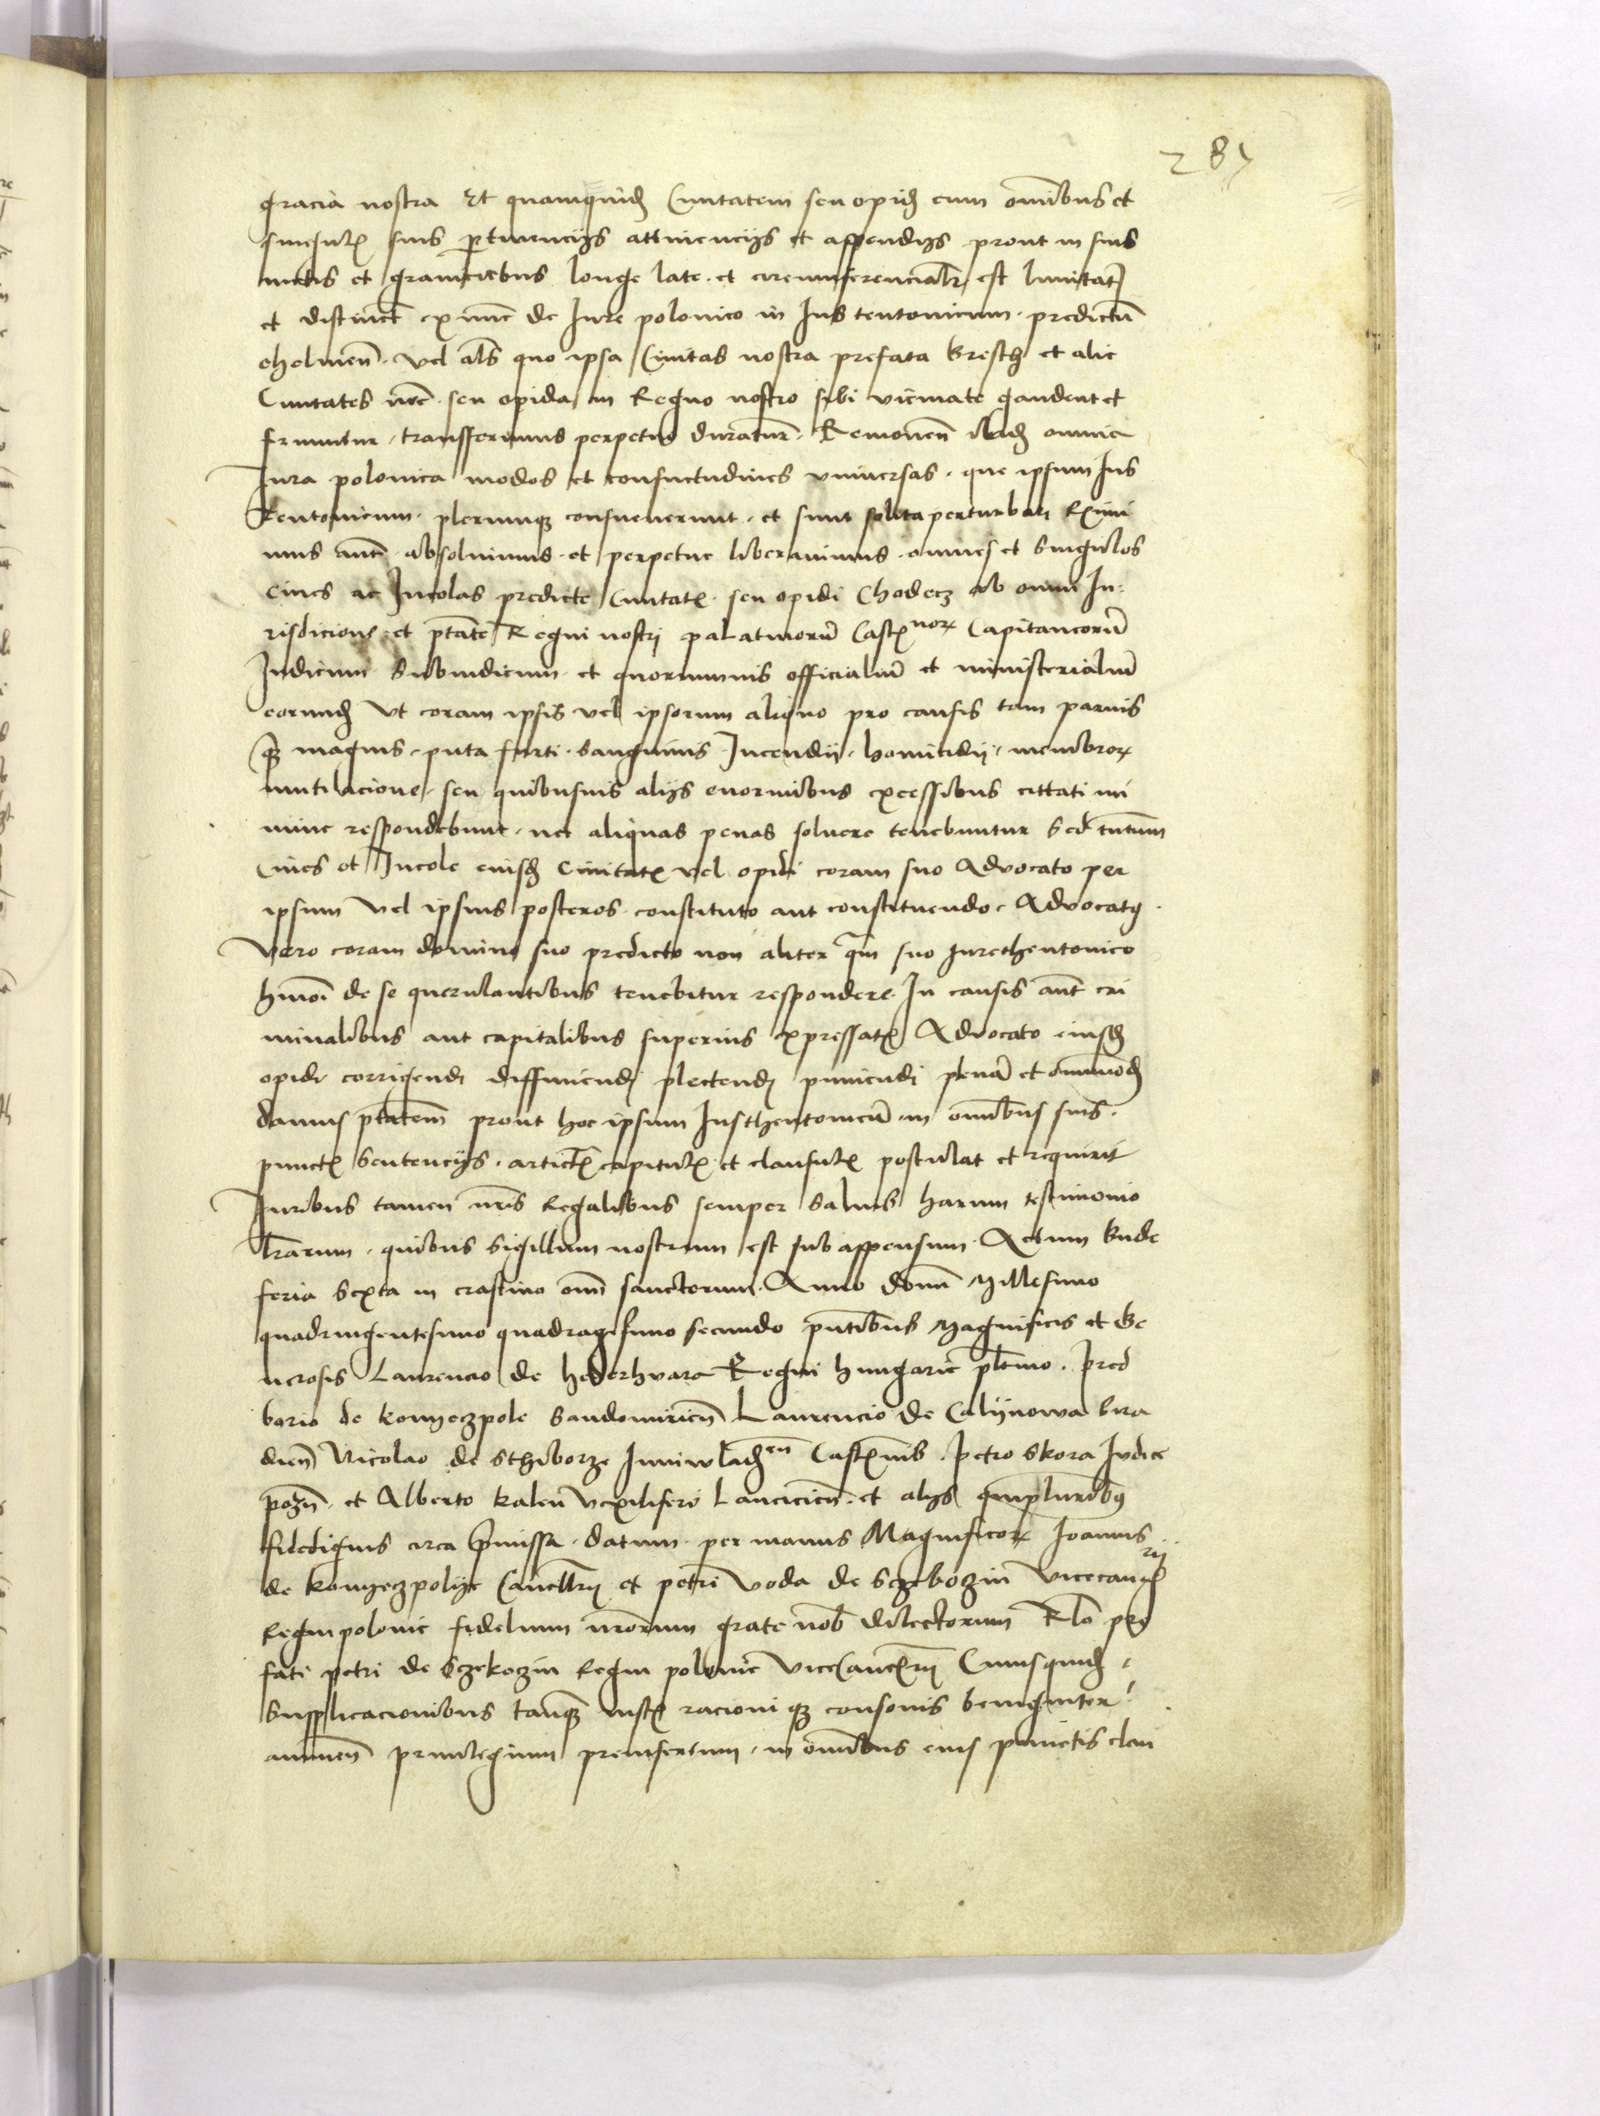 287
gracia nostra Et quamquid(em) Civitatem seu opid(um) cum om̄ibus et
singul(is) suis ꝑtinencijs attinencijs et appendijs prout in suis
metis et graniciebus longe late et circumferencialr̄ est limitat(um)
et distinct(um) ex nunc de Iure polonico in Ius teutonicum predictū
cholmen̄ vel al̄s quo ipsa Civitas nostra prefata Bresth et alie
Civitates nr̄e seu opida in Regno nostro sibi vicinate gaudent et
fruuntur transferimus perpetuo duratur(um) Removen̄ ibid(em) omnia
Iura polonica modos et consuetudines vniversas que ipsum Ius
Teutonicum plerumq(ue) consueverunt et sunt solita perturbari Eximi
mus aut̄ absolvimus et perpetue liberavimus omnes et singulos
Cives ac Incolas predicte Civitat(is) seu opidi Chodecz ab omni Iu
risdicione et ptāte Regni nostri palatinorū Cast(ella)nor(um) Capitaneorū
Iudicum Subiudicum et quorumvis officialiū et ministerialiū
eorund(em) Vt coram ipsis vel ipsorum aliquo pro causis tam parvis
q(uam) magnis puta furti sanguinis Incendii homicidij membror(um)
mutilacione seu quibusvis alijs enormibus excessibus cittati mi
nime respondebunt nec aliquas penas solvere tenebuntur Sed tn̄tum
Cives et Incole eiusd(em) Civitat(is) vel opidi coram suo Advocato per
ipsum vel ipsius posteros constituto aut constituendo Advocatus
Vero coram domino suo predicto non aliter qm̄ suo Iurethentonico
hmōi de se querulantibus tenebitur respondere In causis aut̄ cri
minalibus aut capitalibus superius expressat(is) Advocato eiusd(em)
opidi corrigendi diffiniendi plectendi puniendi plenā et omnimod(am)
damus ptātem prout hoc ipsum Iusthentonicū in om̄ibus suis
punct(is) Sentencijs artic(u)l(is) capitul(is) et clausul(is) postulat et requirit
Iuribus tamen nr̄is Regalibus semper Salvis harum testimonio
lr̄arum quibus Sigillum nostrum est subappensum Actum Bude
feria Sexta in crastino om̄ sanctorum Anno domī Millesimo
quadringentesimo quadragesimo secundo pn̄tibus Magnificis et Ge
nerosis Laurencio de hederhvara Regni hungarie pl̄tino Pred
borio de konyeczpole Sandomirien̄ Laurencio de Calijnowa Sira
dien̄ Nicolao de Sthiborze Iuniwladen̄ Cast(ella)nis Petro Skora Iudice
pozn̄ et Alberto kalen Vexilifero Lancicien̄ et alijs qmplurib(us)
fidedignis circa p̄missa datum per manus Magnificor(um) Ioannis
de konyeczpolije Cancellrij et petri Voda de Sczeboczin vicecancrij
Regni polonie fidelium nr̄orum grate nob̄ dilectorum Rlō pre
fati petri de Sczekoczin Regni polonie vicecanc(ella)rij Cuiusquid(em)
Supplicacionibus tanq(uam) iust(is) racioniq(ue) consonis benigniter
annuen̄ privilegium preinsertum in om̄ibus eius punctis clau